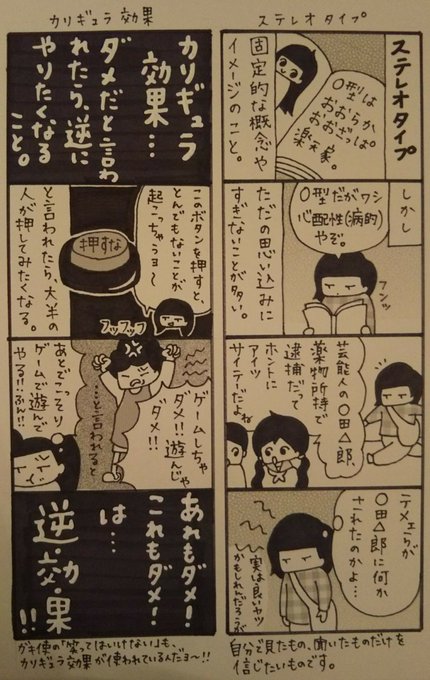 ステレオタイプ
ステレオタイプ
O型は
おおらか
おおざっぱ。
楽天家。
固定的な概念や
イメージのこと。
しかし
O型だがワシ
心配性(病的)
やぞ。
フンッ
ただの思い込みに
すぎないことが多い。
芸能人の〇田△郎、
薬物所持で
逮捕だって
ホントに
アイツ
サイテだよね
テメェらが
〇田△郎に何か
されたのかよ…
実は良いヤツ
かもしれんだろうが
自分で見たもの、聞いたものだけを
信じたいものです。
カリギュラ効果
カリギュラ
効果…
ダメだと言わ
れたら、逆に
やりたくなる
こと。
このボタンを押すと、
とんでもないことが
起こっちゃうヨ〜
押すな
と言われたら、大半の
人が押してみたくなる。
フッフッフッ
ゲームしちゃ
ダメ!!遊んじゃ
ダメ!!
…と言われると
あとでこっそり
ゲームで遊んで
やる!!ぷん!!
あれもダメ!
これもダメ!
は…
逆・効・果!!
ガキ使の「笑ってはいけない」も、
カリギュラ効果が使われているんだヨ〜!!